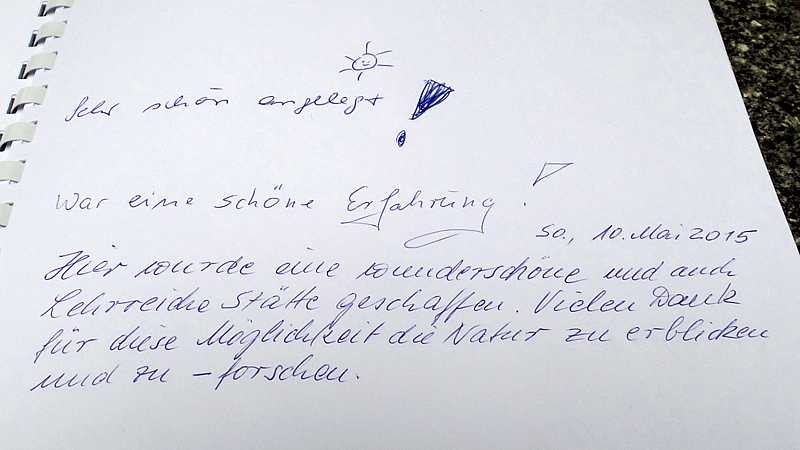 Sehr schön angelegt!
War eine schöne Erfahrung!
So., 10. Mai 2015
Hier wurde eine wunderschöne und auch
Lehrreiche Stätte geschaffen. Vielen Dank
für diese Möglichkeit die Natur zu erblicken
und zu – forschen.